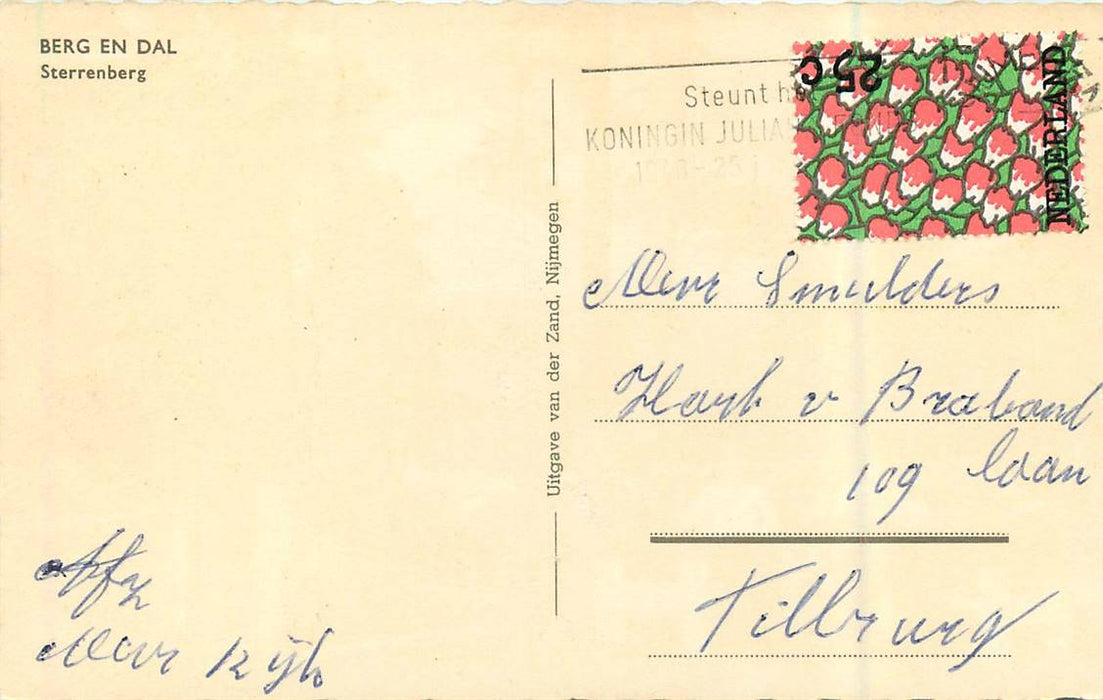 BERG EN DAL
Sterrenberg
Uitgave van der Zand, Nijmegen
Steunt h
KONINGIN JULIA
25 c
NEDERLAND
Mevr Smulders
Hart v Braband
109 laan
Tilburg
Afz
Mevr